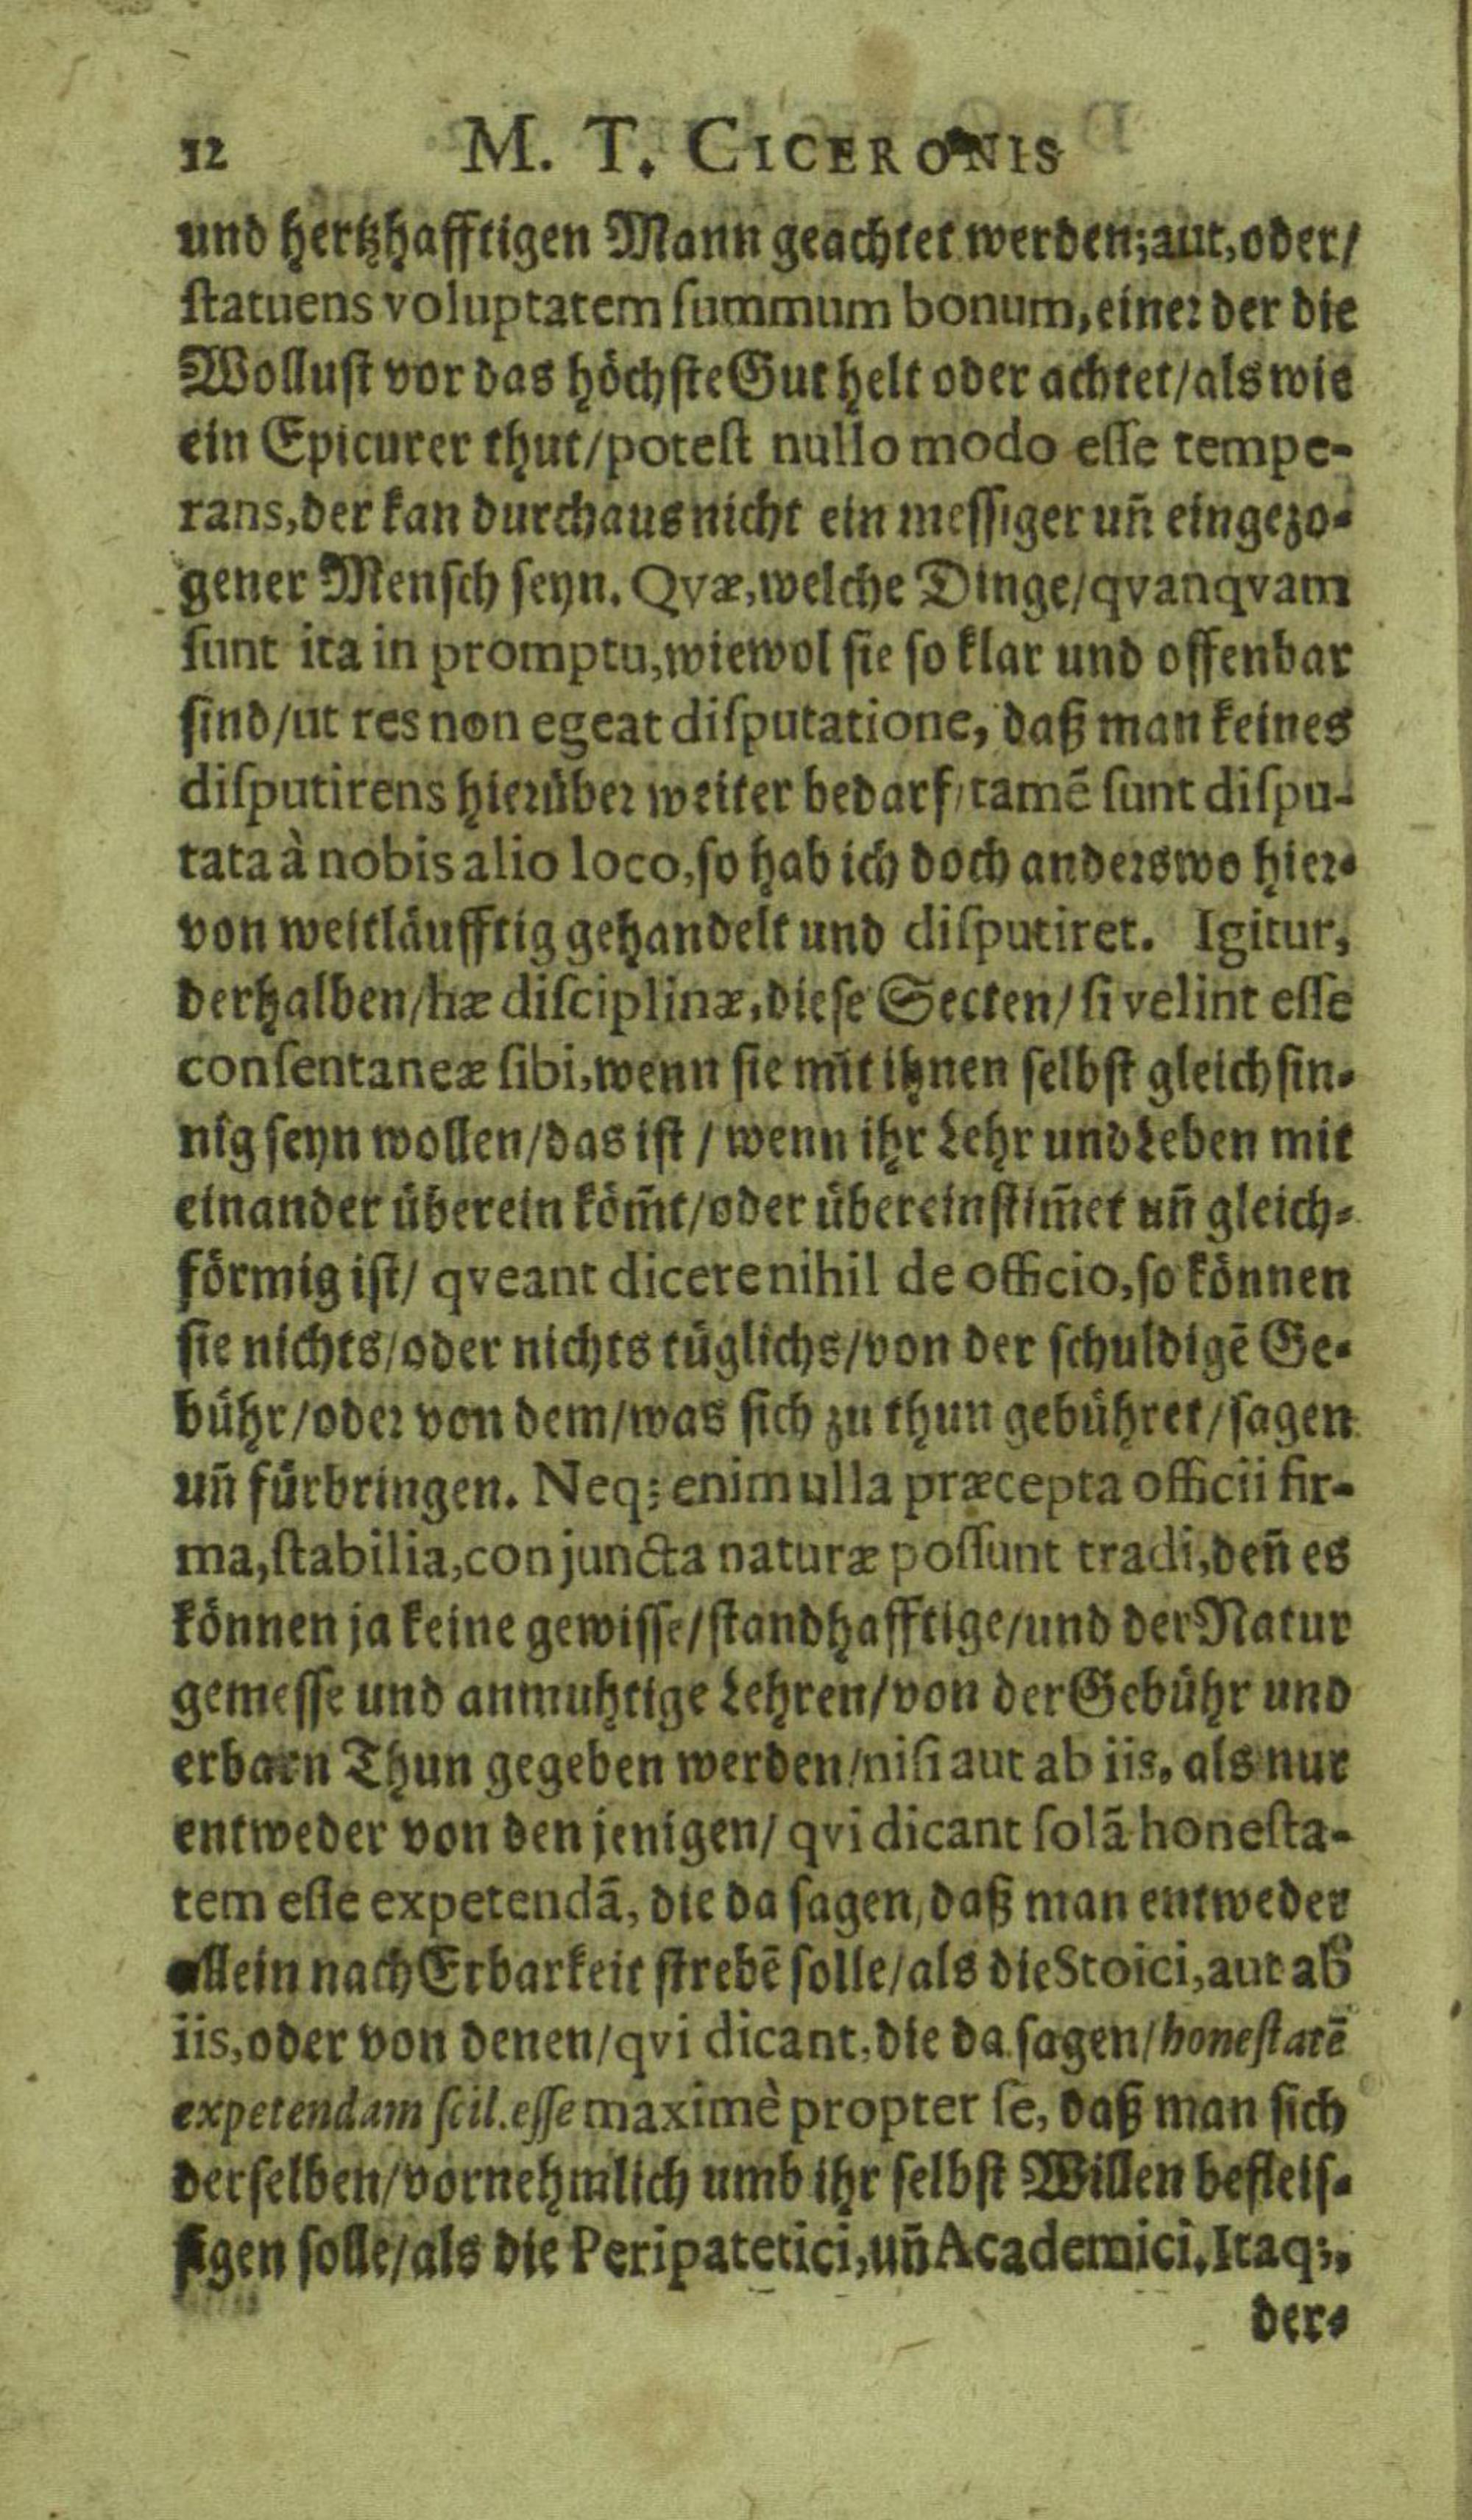 12 M. T. CICERONIS
und hertzhafftigen Mann geachtet werden; aut, oder/
statuens voluptatem summum bonum, einer der die
Wollust vor das höchste Gut helt oder achtet/als wie
ein Epicurer thut/potest nullo modo esse tempe-
rans, der kan durchaus nicht ein messiger uñ eingezo-
gener Mensch seyn. Qvæ, welche Dinge/qvanqvam
sunt ita in promptu, wiewol sie so klar und offenbar
sind/ut res non egeat disputatione, daß man keines
disputirens hierüber weiter bedarf/tamē sunt dispu-
tata à nobis alio loco, so hab ich doch anderswo hier-
von weitläufftig gehandelt und disputiret. Igitur,
derhalben/hæ disciplinæ, diese Secten/si velint esse
consentaneæ sibi, wenn sie mit ihnen selbst gleich sin-
nig seyn wollen/das ist/wenn ihr Lehr und Leben mit
einander überein köm̃t/oder übereinstim̃et uñ gleich-
förmig ist/ qveant dicere nihil de officio, so können
sie nichts/oder nichts tüglichs/von der schuldigē Ge-
bühr/oder von dem/was sich zu thun gebühret/sagen
uñ fürbringen. Neq; enim ulla præcepta officii fir-
ma, stabilia, conjuncta naturæ possunt tradi, deñ es
können ja keine gewisse/standhafftige/und der Natur
gemesse und anmuhtige Lehren/von der Gebühr und
erbarn Thun gegeben werden/nisi aut ab iis, als nur
entweder von den jenigen/ qvi dicant solā honesta-
tem esse expetendā, die da sagen, daß man entweder
allein nach Erbarkeit strebē solle/als die Stoici, aut ab
iis, oder von denen/qvi dicant, die da sagen/honestatē
expetendam scil. esse maximè propter se, daß man sich
derselben/vornehmlich umb ihr selbst Willen befleis-
sigen solle/als die Peripatetici, uñ Academici. Itaq;,
der-